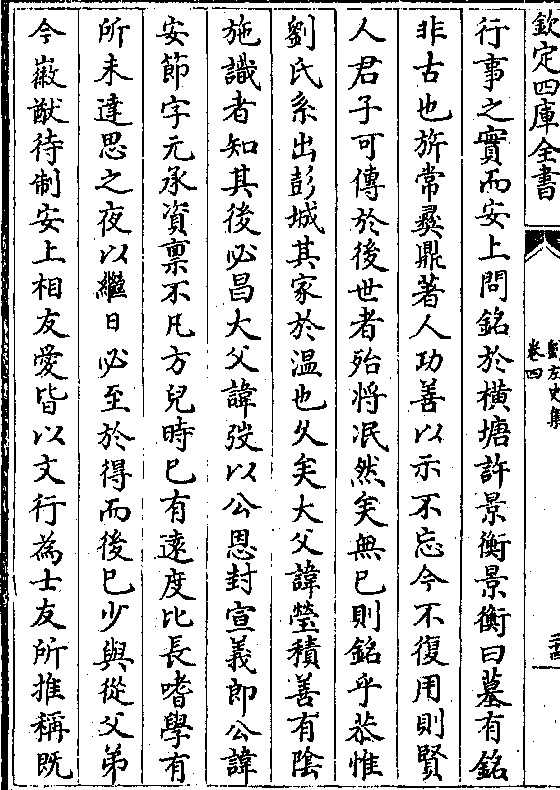 欽定四庫全書
劉左史集
卷四
行事之實而安上問銘於橫塘許景衡景衡曰墓有銘
非古也旂常彛鼎著人功善以示不忘今不復用則賢
人君子可傳於後世者殆將泯然矣無已則銘乎恭惟
劉氏系出彭城其家於溫也乆矣大父諱瑩積善有陰
施識者知其後必昌大父諱弢以公恩封宣義郎公諱
安節字元承資禀不凡方兒時已有逺度比長嗜學有
所未達思之夜以繼日必至於得而後已少與從父弟
今徽猷待制安上相友愛皆以文行為士友所推稱既